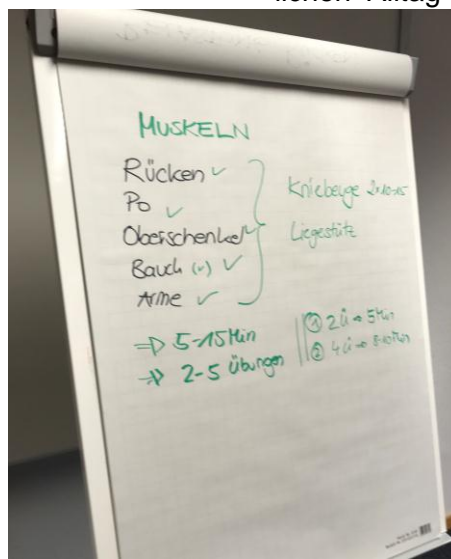 lichen Alltag
MUSKELN
Rücken ✓
Po ✓
Oberschenkel ✓
Bauch (✓) ✓
Arme ✓
Kniebeuge 2x10-15
Liegestütz
⇒ 5-15 Min
⇒ 2-5 Übungen
① 2Ü ⇒ 5Min
② 4Ü ⇒ 8-10Min